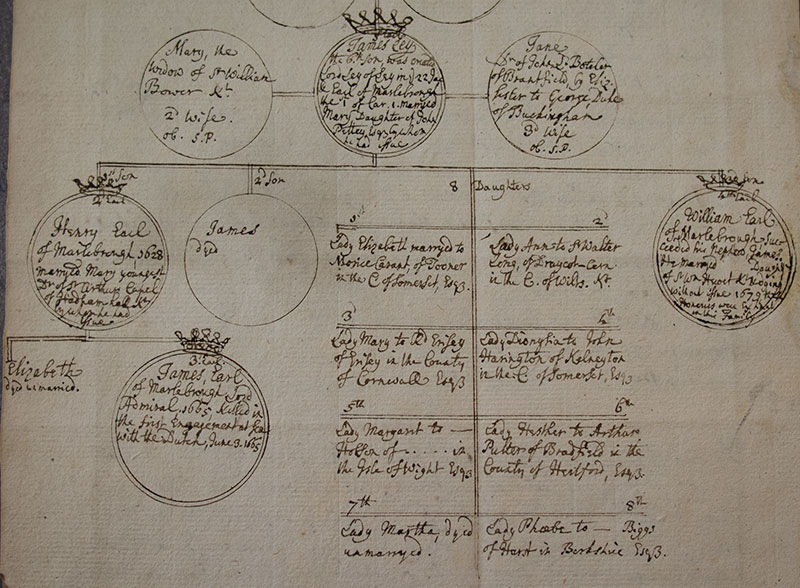 Mary, the
widow of Sr William
Bower Kt.
2d Wife.
ob. S.P.
James Ley
the 6th Son, was created
Lord Ley of Ley in 22 Ja:
& Earl of Marlebrough
the 1 of Car. 1. marryed
Mary, Daughter of John
Pettey, Esq by whom
he had Issue
Jane
Dr of John Ld Boteler
of Brantfield, by Eliz.
sister to George Duke
of Buckingham
3d Wife
ob. S.P.
1st Son
2d Earl
Henry Earl
of Marlebrough 1628
marryed Mary youngest
Dr of Sr Arthur Capel
of Hadham-hall Kt.
by whom he had
Issue
2d Son
James
dyed
8 Daughters
3d Son
4th Earl
William Earl
of Marlebrough, Suc-
ceeded his Nephew James,
He marryed Daught
of Sr Wm Hewet Kt dying
without Issue 1679 both
Honories were Extinct
in this Family
1st
Lady Elizabeth marryed to
Morice Carant, of Tooner
in the C. of Somerset, Esq3.
2d
Lady Ann to Sr Walter
Long, of Draycot-Cern
in the C. of Wilts. Kt.
3
Lady Mary to Rd Erisey
of Erisey in the County
of Cornwall Esq3
4th
Lady Dionysia to John
Harington of Kelneyton
in the C. of Somerset, Esq3
5th
Lady Margaret to —
Hobson of ..... in
the Isle of Wight Esq3
6th
Lady Hesther to Arthur
Pulter of Bradfield in the
County of Hertford, Esq3.
7th
Lady Martha, dyed
unmarryed.
8th
Lady Phœbe to — Biggs
of Hurst in Berkshire Esq3.
Elizabeth
dyed unmarried.
3d Earl
James, Earl
of Marlebrough Lord
Admiral 1665 killed in
the first Engagement at Sea
with the Dutch, June 3. 1665